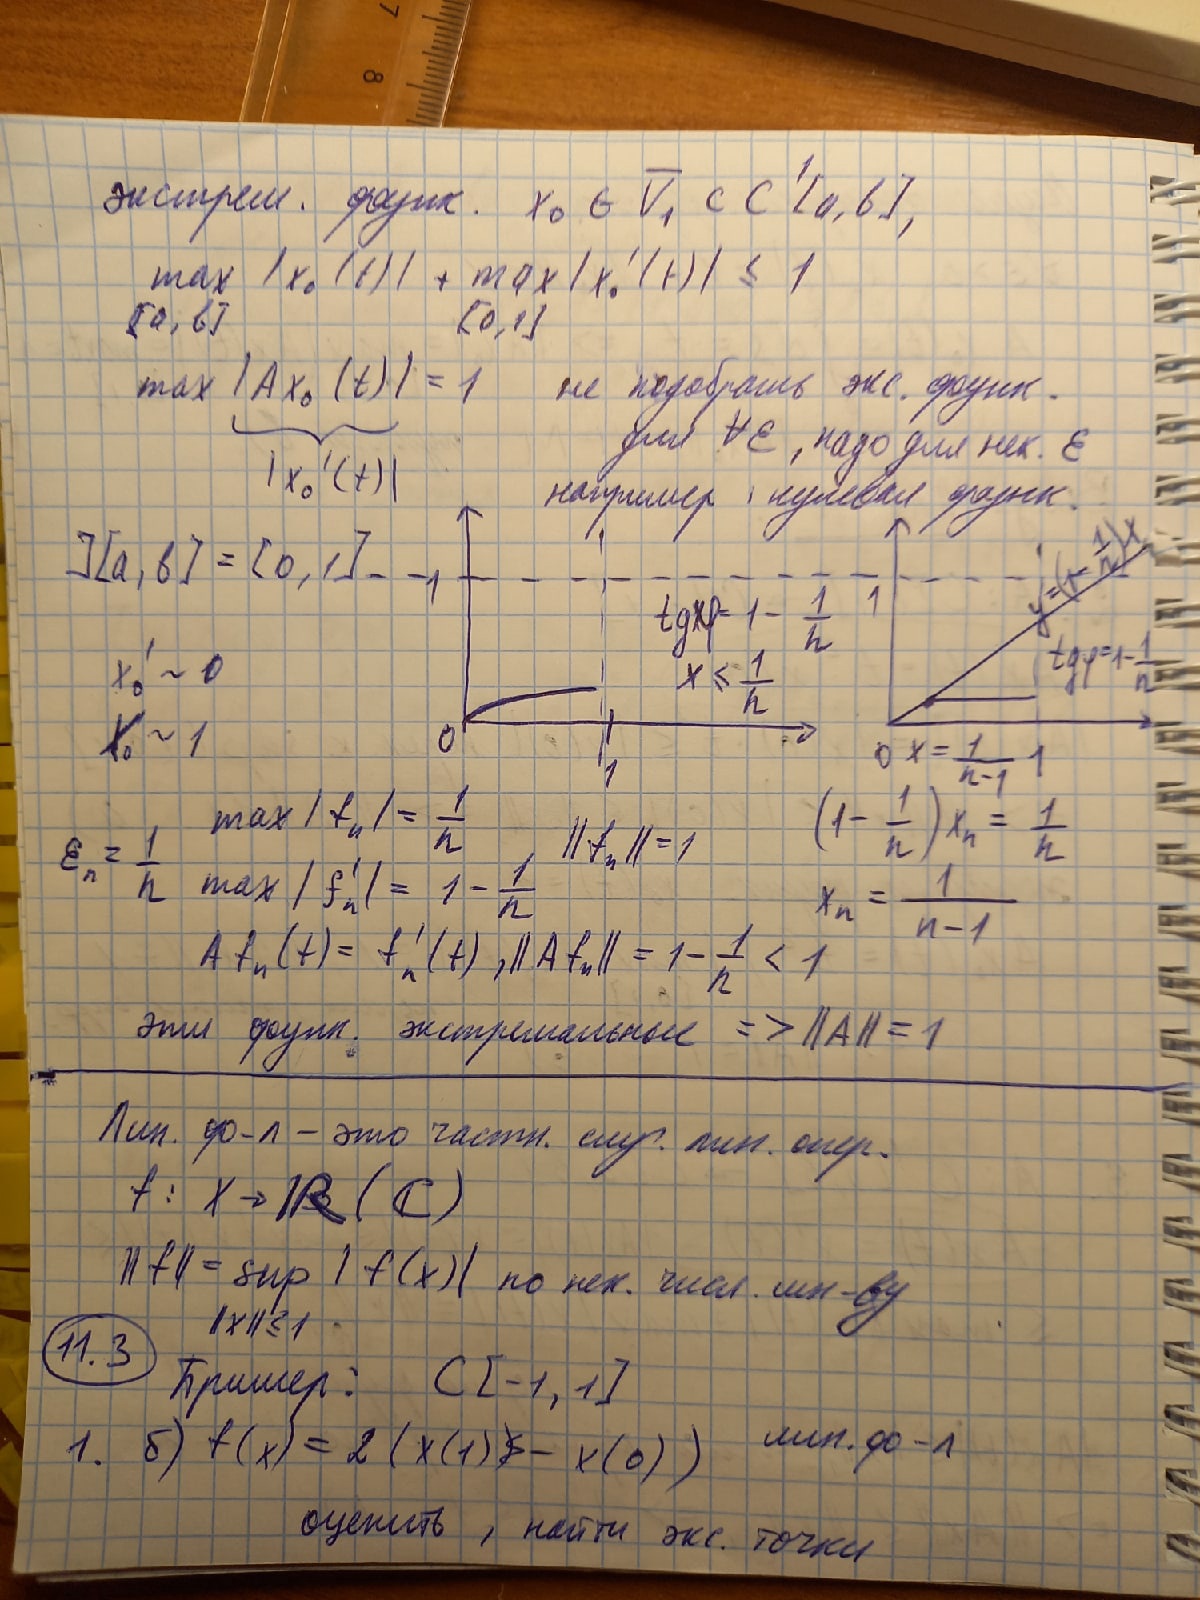 7 8
экстрем. функ. x₀ ∈ V̅₁ ⊂ C¹[a,b],
max |x₀(t)| + max |x₀'(t)| ≤ 1
[a,b] [0,1]
max |Ax₀(t)| = 1 не подобрать экс. функ.
|x₀'(t)| для ∀ε, надо для нек. ε
например, нулевая функ.
][a,b] = [0,1]
1 tgφ = 1 - 1/n 1 y=(1-1/n)x
x₀' ~ 0 x ≤ 1/n tgφ=1-1/n
x₀ ~ 1 0 1 0 x = 1/(n-1) 1
max |fₙ| = 1/n ||fₙ|| = 1 (1 - 1/n)xₙ = 1/n
εₙ = 1/n max |fₙ'| = 1 - 1/n xₙ = 1/(n-1)
A fₙ(t) = fₙ'(t), ||Afₙ|| = 1 - 1/n < 1
эти функ. экстремальные => ||A|| = 1
Лин. ф-л – это частн. случ. лин. опер.
f: X → ℝ (ℂ)
||f|| = sup |f(x)| по нек. числ. мн-ву
||x|| ≤ 1
11.3
Пример: C[-1,1]
1. б) f(x) = 2(x(1) - x(0)) лин. ф-л
оценить, найти экс. точки